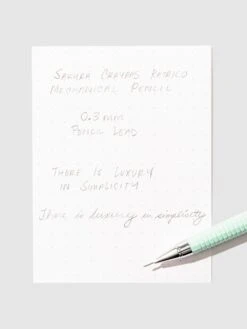 SAKURA CRAYPAS KATRICO
MECHANICAL PENCIL
0.3 mm
PENCIL LEAD
THERE IS LUXURY
IN SIMPLICITY
There is luxury in simplicity